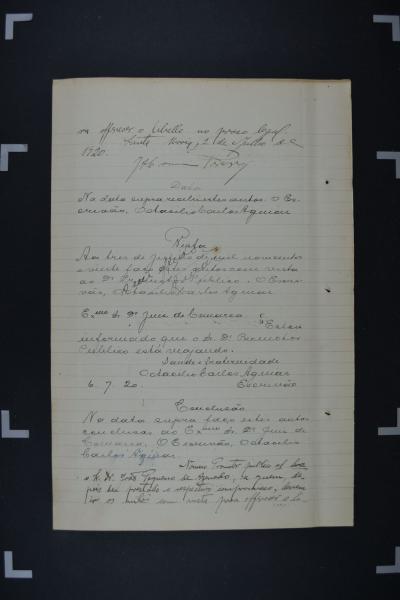 ra offerecer o libello no praso legal.
Santa Maria, 2 de Julho de
1920.
Data
Na data supra recebi estes autos. O Es-
crivão, Octacilio Carlos Aguiar
Vista
Aos tres de Julho de mil novecentos
e vinte faço estes autos com vista
ao Dr. Promotor Publico. O Escri-
vão, Octacilio Carlos Aguiar
Exmo Sr. Dr. Juiz de Comarca
Estou
informado que o Sr. Dr. Promotor
Publico está viajando.
Saude e Fraternidade
Octacilio Carlos Aguiar
6.7.20. Escrivão
Conclusão
Na data supra faço estes autos
conclusos ao Exmo Sr. Dr. Juiz de
Comarca. O Escrivão, Octacilio
Carlos Aguiar.
Nomeio Promotor publico ad hoc
o Sr. Dr. João de Azevedo, a quem, de-
pois de prestado o respectivo compromisso, devem
ir os autos com vista para offerecer o li-